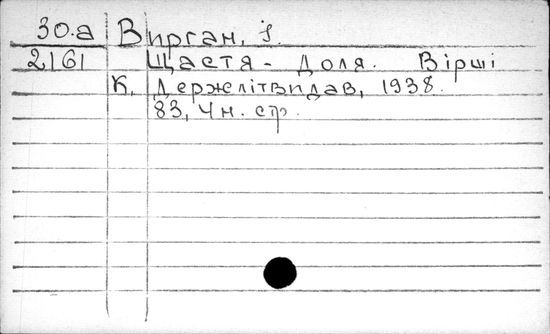 30.а Вирган, І.
2161 Щастя - Доля. Вірші
К. Держлітвидав, 1938.
83, 4 н. стр.